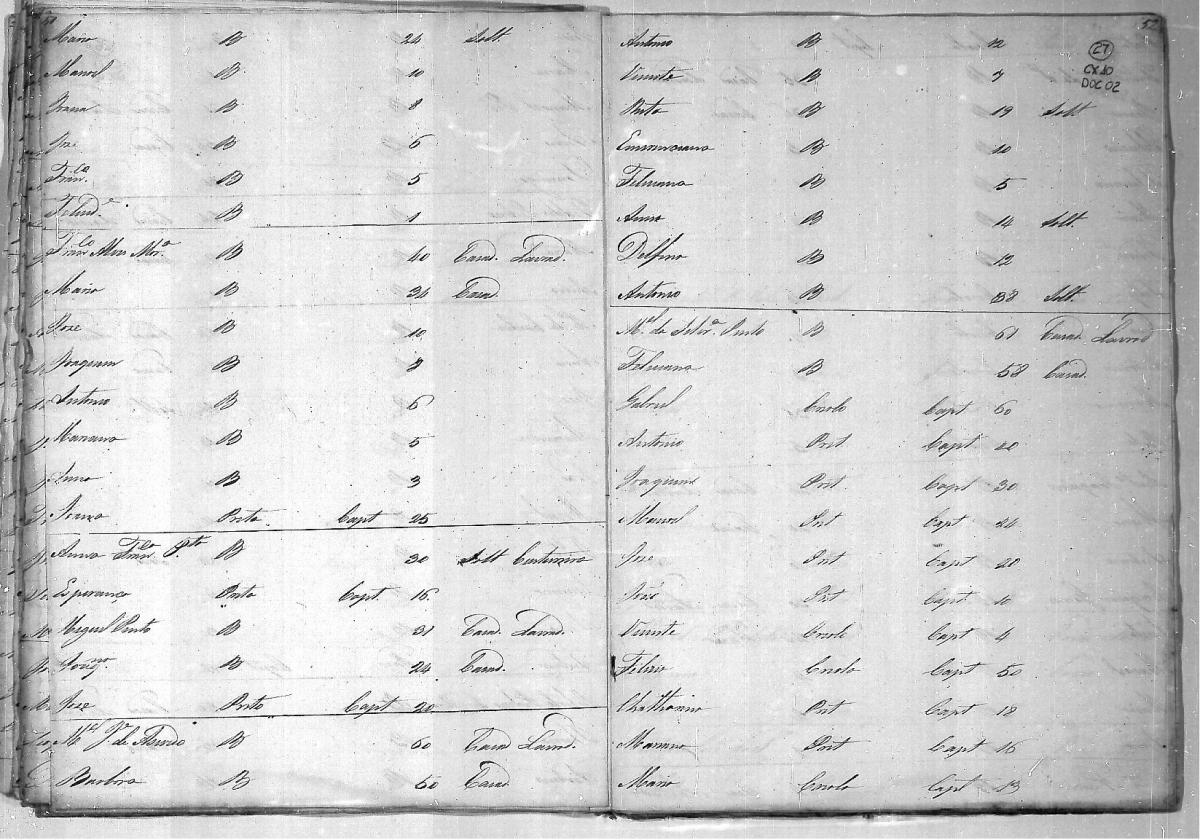 51
Maria B 24 Solt.
Manoel B 10
Joana B 8
Jze B 6
Fran.ca B 5
Felisd.e B 1
Fran.co Alves Mor.a B 40 Cazad. Lavrad.
Maria B 34 Cazad.
Joze B 10
Joaquim B 8
Antonio B 6
Marianna B 5
Anna B 3
Joanna Preta Capt 25
Anna Fran.ca P.to B 30 Solt Custureira
Esperança Preta Capt. 16
Miguel Pinto B 31 Cazad. Lavrad.
B 24 Cazad.
Joze Preto Capt 20
M.el J.e de Azevedo B 60 Cazad Lavrad.
Barbra B 50 Cazad
52
27
CX 10
DOC 02
Antonio B 12
Vicente B 7
Rita B 19 Solt
Emerenciana B 10
Feliciana B 5
Anna B 14 Solt.
Delfina B 12
Antonio B 38 Solt.
M.el da Silv.a Pinto B 61 Cazad. Lavrad
Feliciana B 58 Cazad.
Gabriel Criolo Capt 60
Antonio Pret Capt 20
Joaquim Pret. Capt 30
Manoel Pret Capt 24
Jze Pret Capt 20
José Pret Capt. 10
Vicente Criolo Capt 4
Feliz Criolo Capt 50
Chatharina Pret Capt 18
Mariana Pret Capt 16
Maria Criola Capt 13